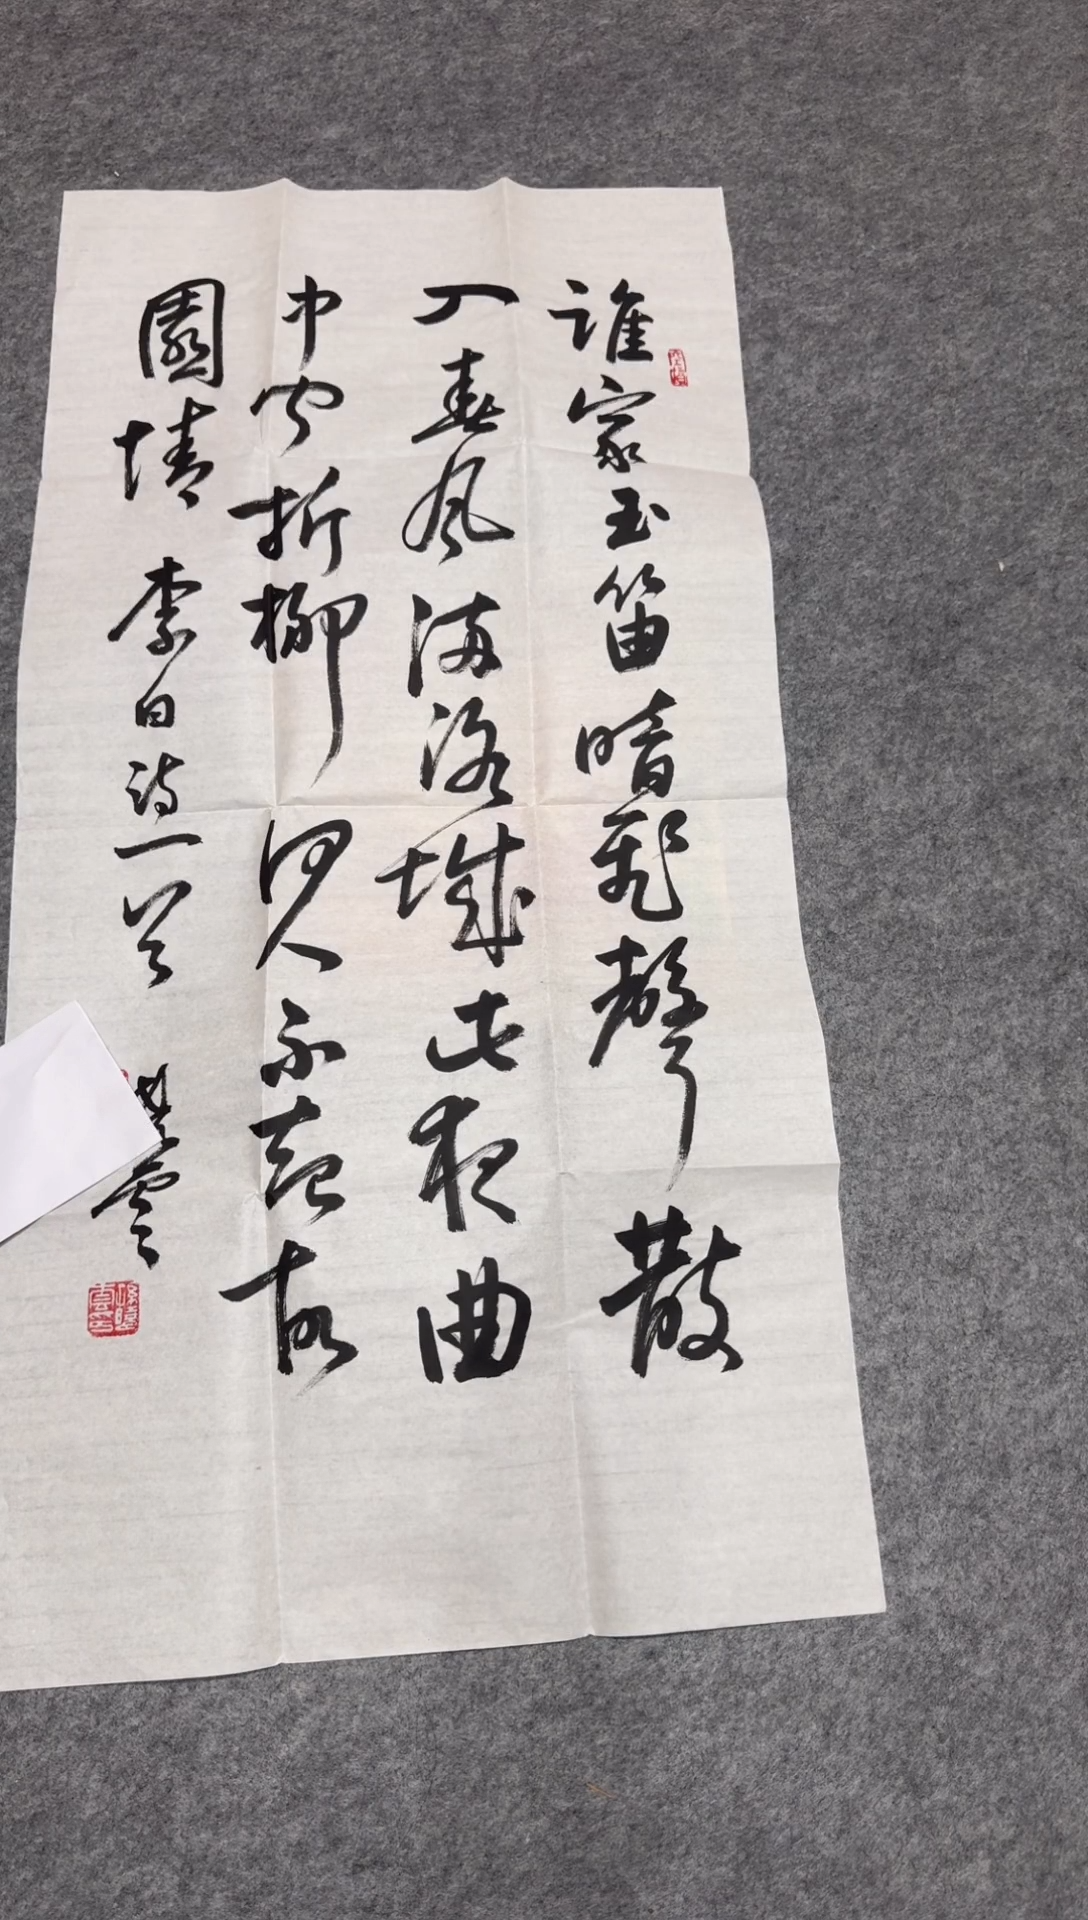 誰家玉笛暗飛聲散
入春風滿洛城此夜曲
中聞折柳何人不起故
園情 李白詩一首 曉雲
孫曉雲印